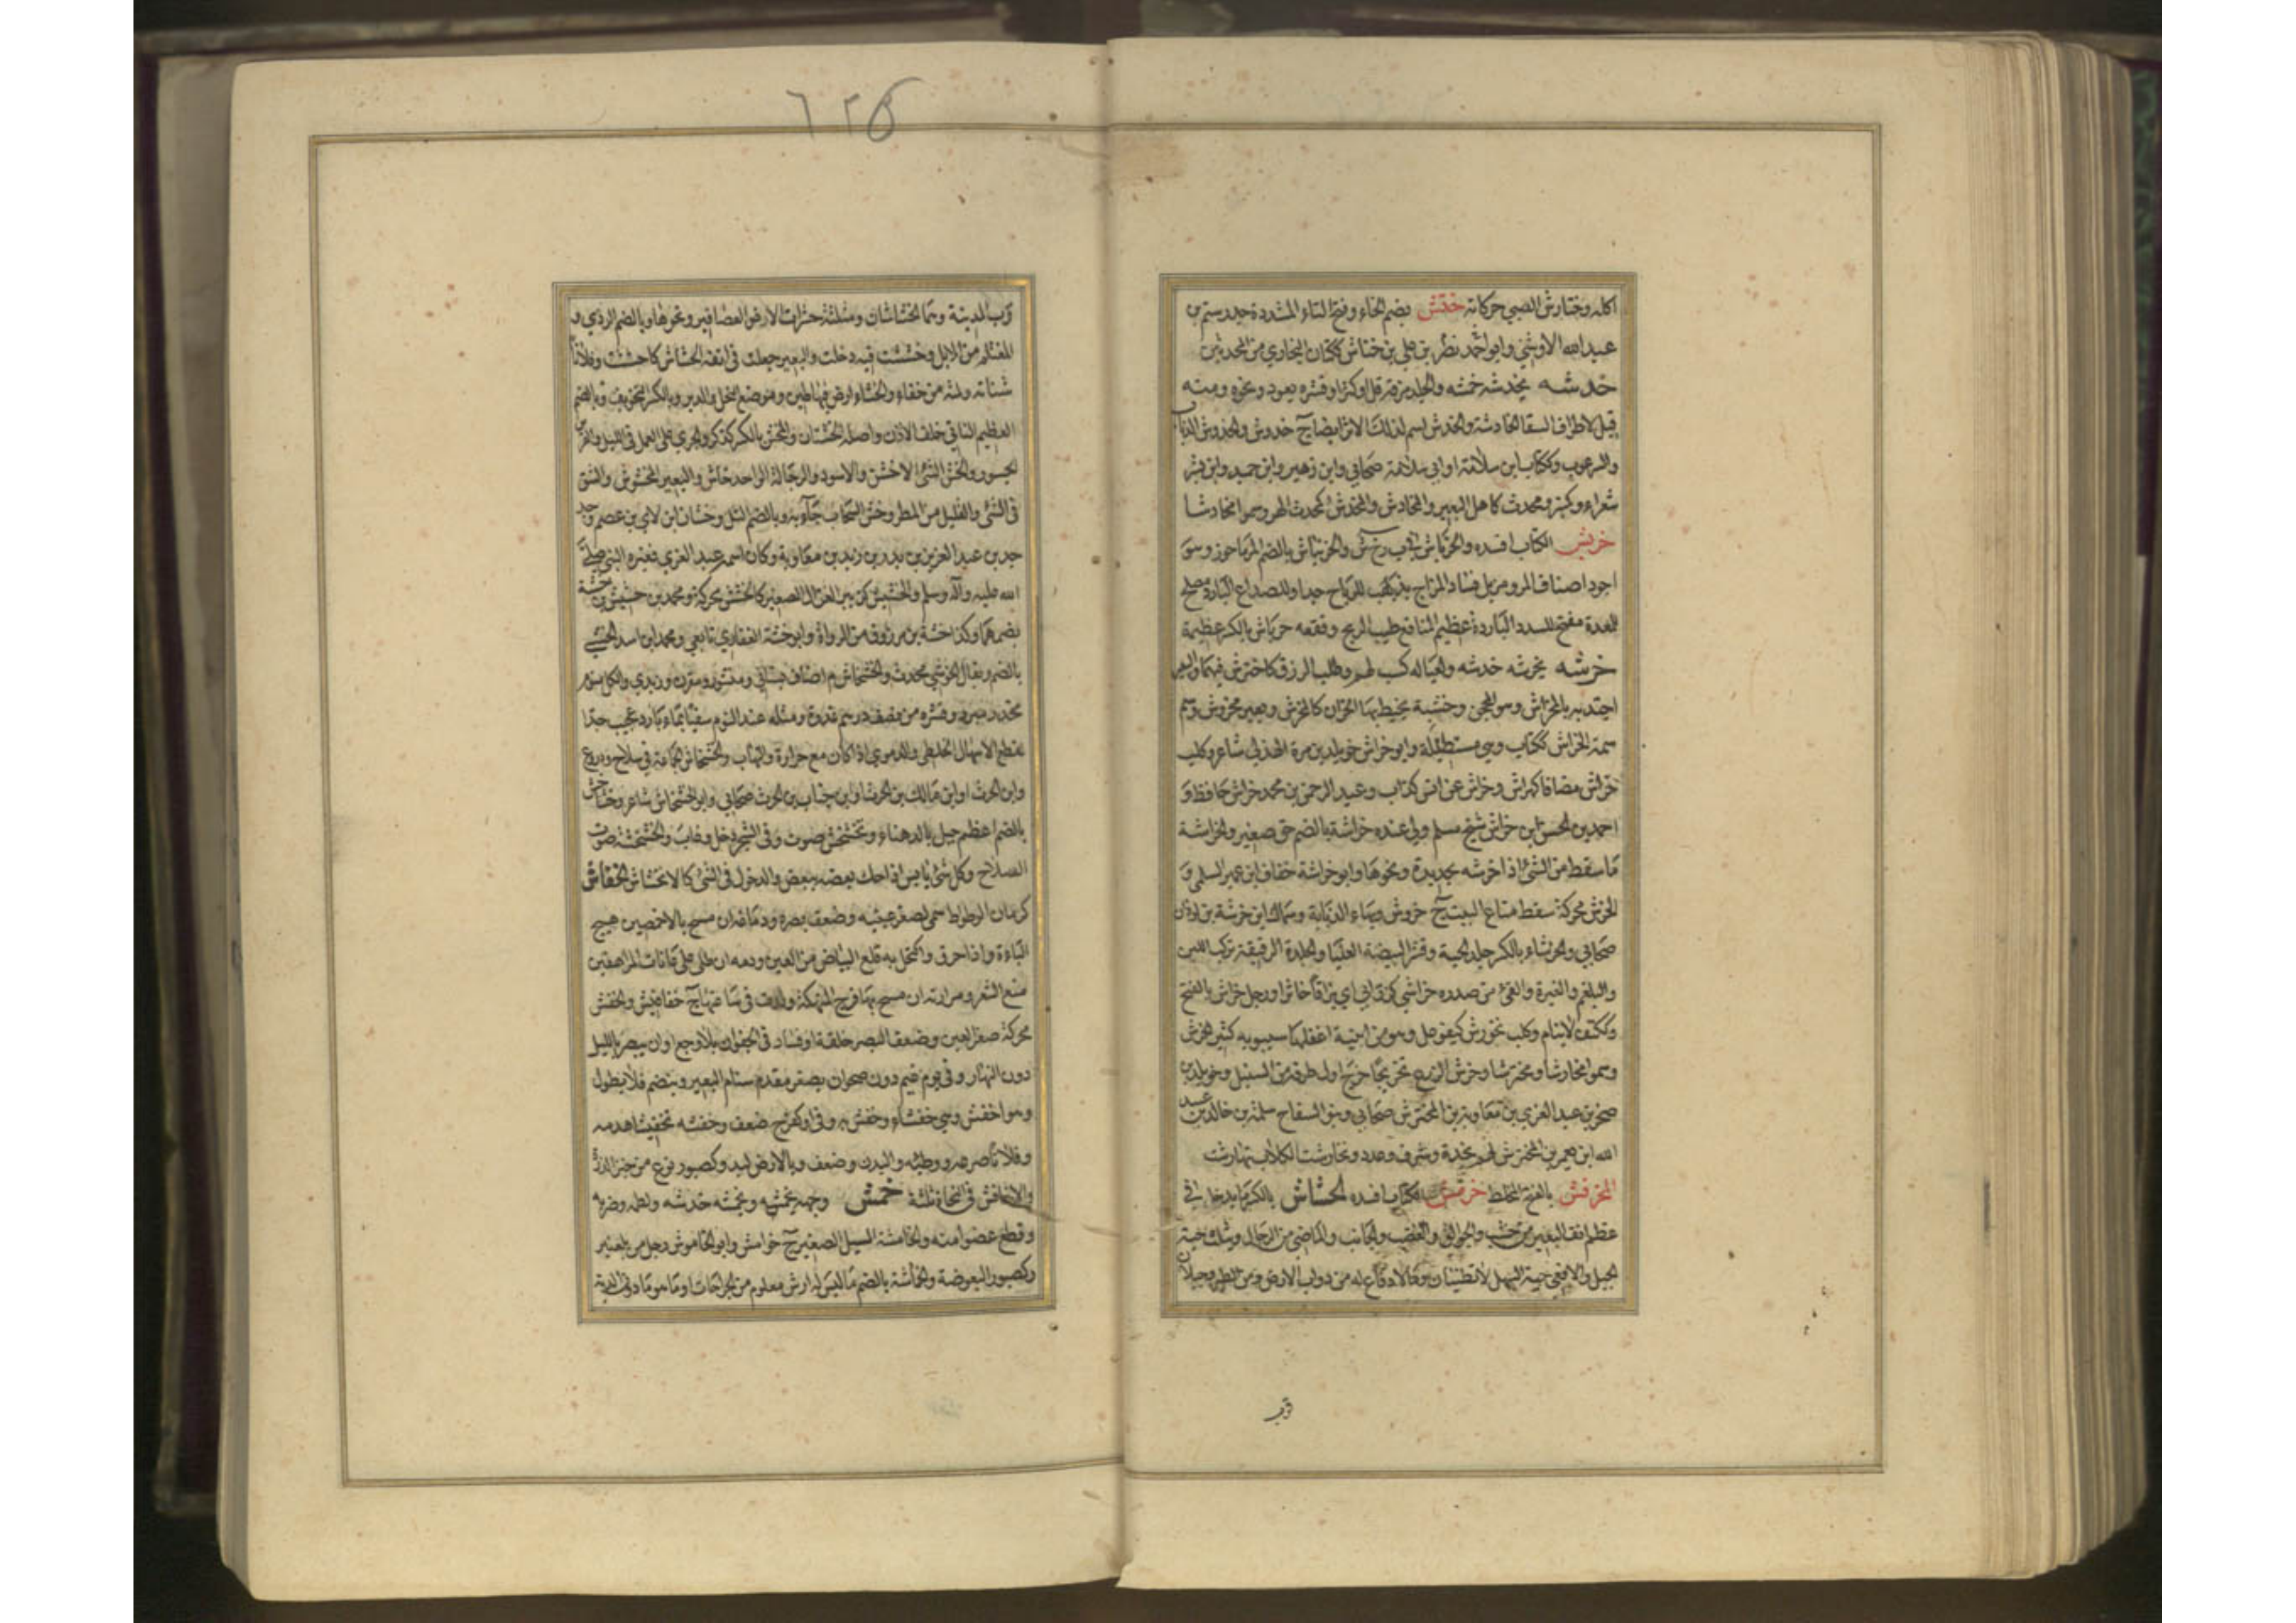 اكله وختارش الصبي حركاته ختش بضم الخاء وفتح التاء المشددة جد رستم بن
عبد الله الاوشني وابو احمد نصر بن علي بن ختاش ككتان البخاري من المحدثين
خدشه يخدشه خمشه والجلد مزقه قل او كثر او قشره بعود ونحوه ومنه
قيل لاطراف السفا الخادشة والخدش اسم لذلك الاثر ايضا ج خدوش والخدوش الذباب
والبرغوث وككتاب ابن سلامة او ابي سلامة صحابي وابن زهير وابن حميد وابن بشر
شعراء وكمنبر ومحدث كاهل البعير والمخادش والمخدش كمحدث الهر وسموا مخادشا
خربش الكتاب افسده والخرباش في ب رخ ش والخرنباش بالضم المرماحوز وسو
اجود اصناف المرو مزيل فساد المزاج مذهب للرياح جدا وللصداع البارد مصلح
للمعدة مفتح للسدد الباردة عظيم المنافع طيب الريح وقعقعه خرباش بالكسر عظيمة
خرشه يخرشه خدشه ولعياله كسب لهم وطلب الرزق كاخترش فيهما والبعير
اجتذبه بالمخراش وسو المحجن وخشبة يخيط بها الخراز كالمخرش وبعير مخروش وسم
سمة الخراش ككتاب وسي مستطيلة وابو خراش خويلد بن مرة الهذلي شاعر وكلب
خراش مضافا كهراش وخراش عن انس كذاب وعبد الرحمن بن محمد خراش حافظ و
احمد بن الحسن بن خراش شيخ مسلم ولي عنده خراشة بالضم حق صغير والخراشة
ما سقط من الشئ اذا خرشته بحديدة ونحوها وابو خراشة خفاف ابن عمير السلمي و
الخرش محركة سقط متاع البيت ج خروش وبهاء الذبابة وسماك ابن خرشة بن لوذان
صحابي والخرشاء بالكسر جلد الحية وقشر البيضة العليا والجلدة الرقيقة تركب اللبن
والبلغم والغبرة والقئ من صدره خراشي كزرابي اي بزاقا خاثرا ورجل خراش بالفتح
وككتف لاينام وكلب نخورش كيفوعل وسو من ابنية اغفلها سيبويه كثير الخرش
وسموا مخارشا ومخترشا وخرش الزرع تخريجا خرج اول طرفه من السنبل وخويلد بن
صخر بن عبد العزي بن معاوية بن المخترش صحابي وبنو السفاح سلمة بن خالد بن عبد
الله ابن يعمر بن المخترش لهم نجدة وشرف وعدد وتخارشت الكلاب تهارشت
المخرفش بالفتح المخلط خرمش الكتاب افسده الخشاش بالكسر ما يدخل في
عظم انف البعير من خشب والجوالق والغضب والجانب والماضي من الرجال ويثلث وحية
الجبل والافعي حية السهل لا تطنيان وما لا دماغ له من دواب الارض ومن الطير وجبلان
قرب
٦٢٥
قرب المدينة وسما الخشاشان ومثلثة حشرات الارض العصافير ونحوها وبالضم الردي و
المغتلم من الابل وخششت فيه دخلت والبعير جعلت في انفه الخشاش كاخششت وفلانا
شنأته ولمته من خفاء والخشاء ارض فيها طين وموضع النحل والدبر وبالكسر التخويف وبالضم
العظيم الناتي خلف الاذن واصله الخششاء والمخش بالكسر كذكر والجري على العمل في الليل والفرس
الجسور والخش الشئ الاخشن والاسود والرجالة الواحد خاش والبعير المخشوش والشق
في الشئ والقليل من المطر وخش السحاب جاء به وبالضم التل وخشان ابن لاي بن عصم وجد
جد بن عبد العزيز بن بدر بن زيد بن معاوية وكان اسمه عبد العزي فغيره النبي صلي
الله عليه وآله وسلم والخشيش كزبير الغزال الصغير كالخشش محركة ومحمد بن خشيش بن خشة
بضمهما وكذا خشة بن مرزوق من الرواة وابو خشة الغفاري تابعي ومحمد ابن اسد الخشي
بالضم ويقال الخوشي محدث والخشخاش م اصناف بستاني ومنثور ومقرن وزبدي والكل منوم
مخدر مبرد وقشره من نصف درسم غدوة ومثله عند النوم سفيا بماء بارد عجيب جدا
لقطع الاسهال الخلطي والدموي اذا كان مع حرارة والتهاب والخشخاش الجماعة في سلاح ودروع
وابن الحرث او ابن مالك بن الحرث او ابن جناب بن الحرث صحابي وابو الخشخاش شاعر وخشاخش
بالضم اعظم جبل بالدهناء وتخشخش صوت وفي الشجر دخل وغاب والخشخشة صوت
السلاح وكل شئ يابس اذا حك بعضه ببعض والدخول في الشئ كالانخشاش الخفاش
كرمان الوطواط سمي لصغر عينيه وضعف بصره ودماغه ان مسح بالاخمصين هيج
الباءة واذا حرق واكتحل به قلع البياض من العين ودمه ان طلي على عانات المراهقين
منع الشعر ومرارته ان مسح بها فرج المنهكة ولدت في ساعتها ج خفافيش والخفش
محركة صغر العين وضعف البصر خلقة او فساد في الجفون بلا وجع او ان يبصر بالليل
دون النهار وفي يوم غيم دون صحو وان يصغر مقدم سنام البعير وينضم فلا يطول
وسو اخفش وسي خفشاء وخفش به وفي او كفرح ضعف وخفشه تخفيشا هدمه
وفلانا صرعه ووطئه والبدن وضعف وبالارض لبد وكصبور نوع من خبز الذرة
والاخافش في النحاة ثلثة خمش وجهه يخمشه ويخمشه خدشه ولطمه وضربه
وقطع عضوا منه والخامشة المسيل الصغير ج خوامش وابو الخاموش رجل من بلعنبر
وكصبور البعوضة والخماشة بالضم ما ليس له ارش معلوم من الجراحات او ما هو ما دون الدية